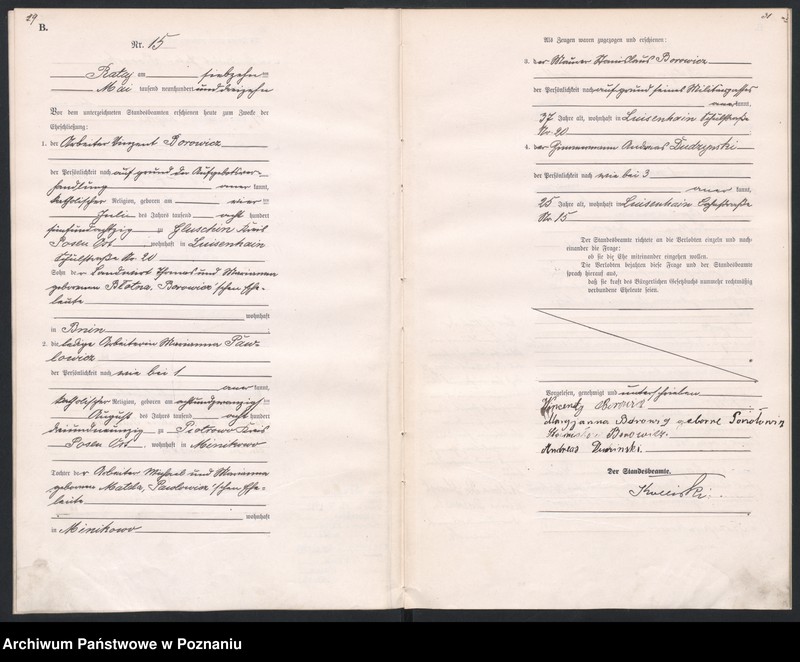 29
B.
Nr. 15
Rataj am siebzehnten
Mai tausend neunhundert und dreizehn
Vor dem unterzeichneten Standesbeamten erschienen heute zum Zwecke der
Eheschließung:
1. der Arbeiter Vinzent Borowicz
der Persönlichkeit nach auf grund der Aufgebotsver-
handlung anerkannt,
katholischer Religion, geboren am vier
Juli des Jahres tausend acht hundert
fünfundachtzig zu Gluschin Kreis
Posen Ost, wohnhaft in Luisenhain
Schulstraße Nr. 20
Sohn der Landwirt Thomas und Marianna
geborenen Błotna, Borowicz'schen Ehe-
leute
wohnhaft
in Bnin
2. die ledige Arbeiterin Marianna Paw-
lowicz
der Persönlichkeit nach wie bei 1
anerkannt,
katholischer Religion, geboren am achtundzwanzigsten
August des Jahres tausend acht hundert
dreiundneunzig zu Piotrowo Kreis
Posen Ost, wohnhaft in Minikowo
Tochter der Arbeiter Michael und Marianna
geborenen Matela, Pawlowicz'schen Ehe-
leute
wohnhaft
in Minikowo
Als Zeugen waren zugezogen und erschienen:
3. der Maurer Stanislaus Borowicz
der Persönlichkeit nach auf grund seines Militärpasses
anerkannt,
37 Jahre alt, wohnhaft in Luisenhain Schulstraße
Nr. 20
4. der Zimmermann Andreas Dudzynski
der Persönlichkeit nach wie bei 3
anerkannt,
25 Jahre alt, wohnhaft in Luisenhain
Nr. 15
Der Standesbeamte richtete an die Verlobten einzeln und nach-
einander die Frage:
ob sie die Ehe miteinander eingehen wollen.
Die Verlobten bejahten diese Frage und der Standesbeamte
sprach hierauf aus,
daß sie kraft des Bürgerlichen Gesetzbuchs nunmehr rechtmäßig
verbundene Eheleute seien.
Vorgelesen, genehmigt und unterschrieben
Vincenty
Maryjanna Borowicz geborne
Borowicz
Andreas
Der Standesbeamte.
Archiwum Państwowe w Poznaniu